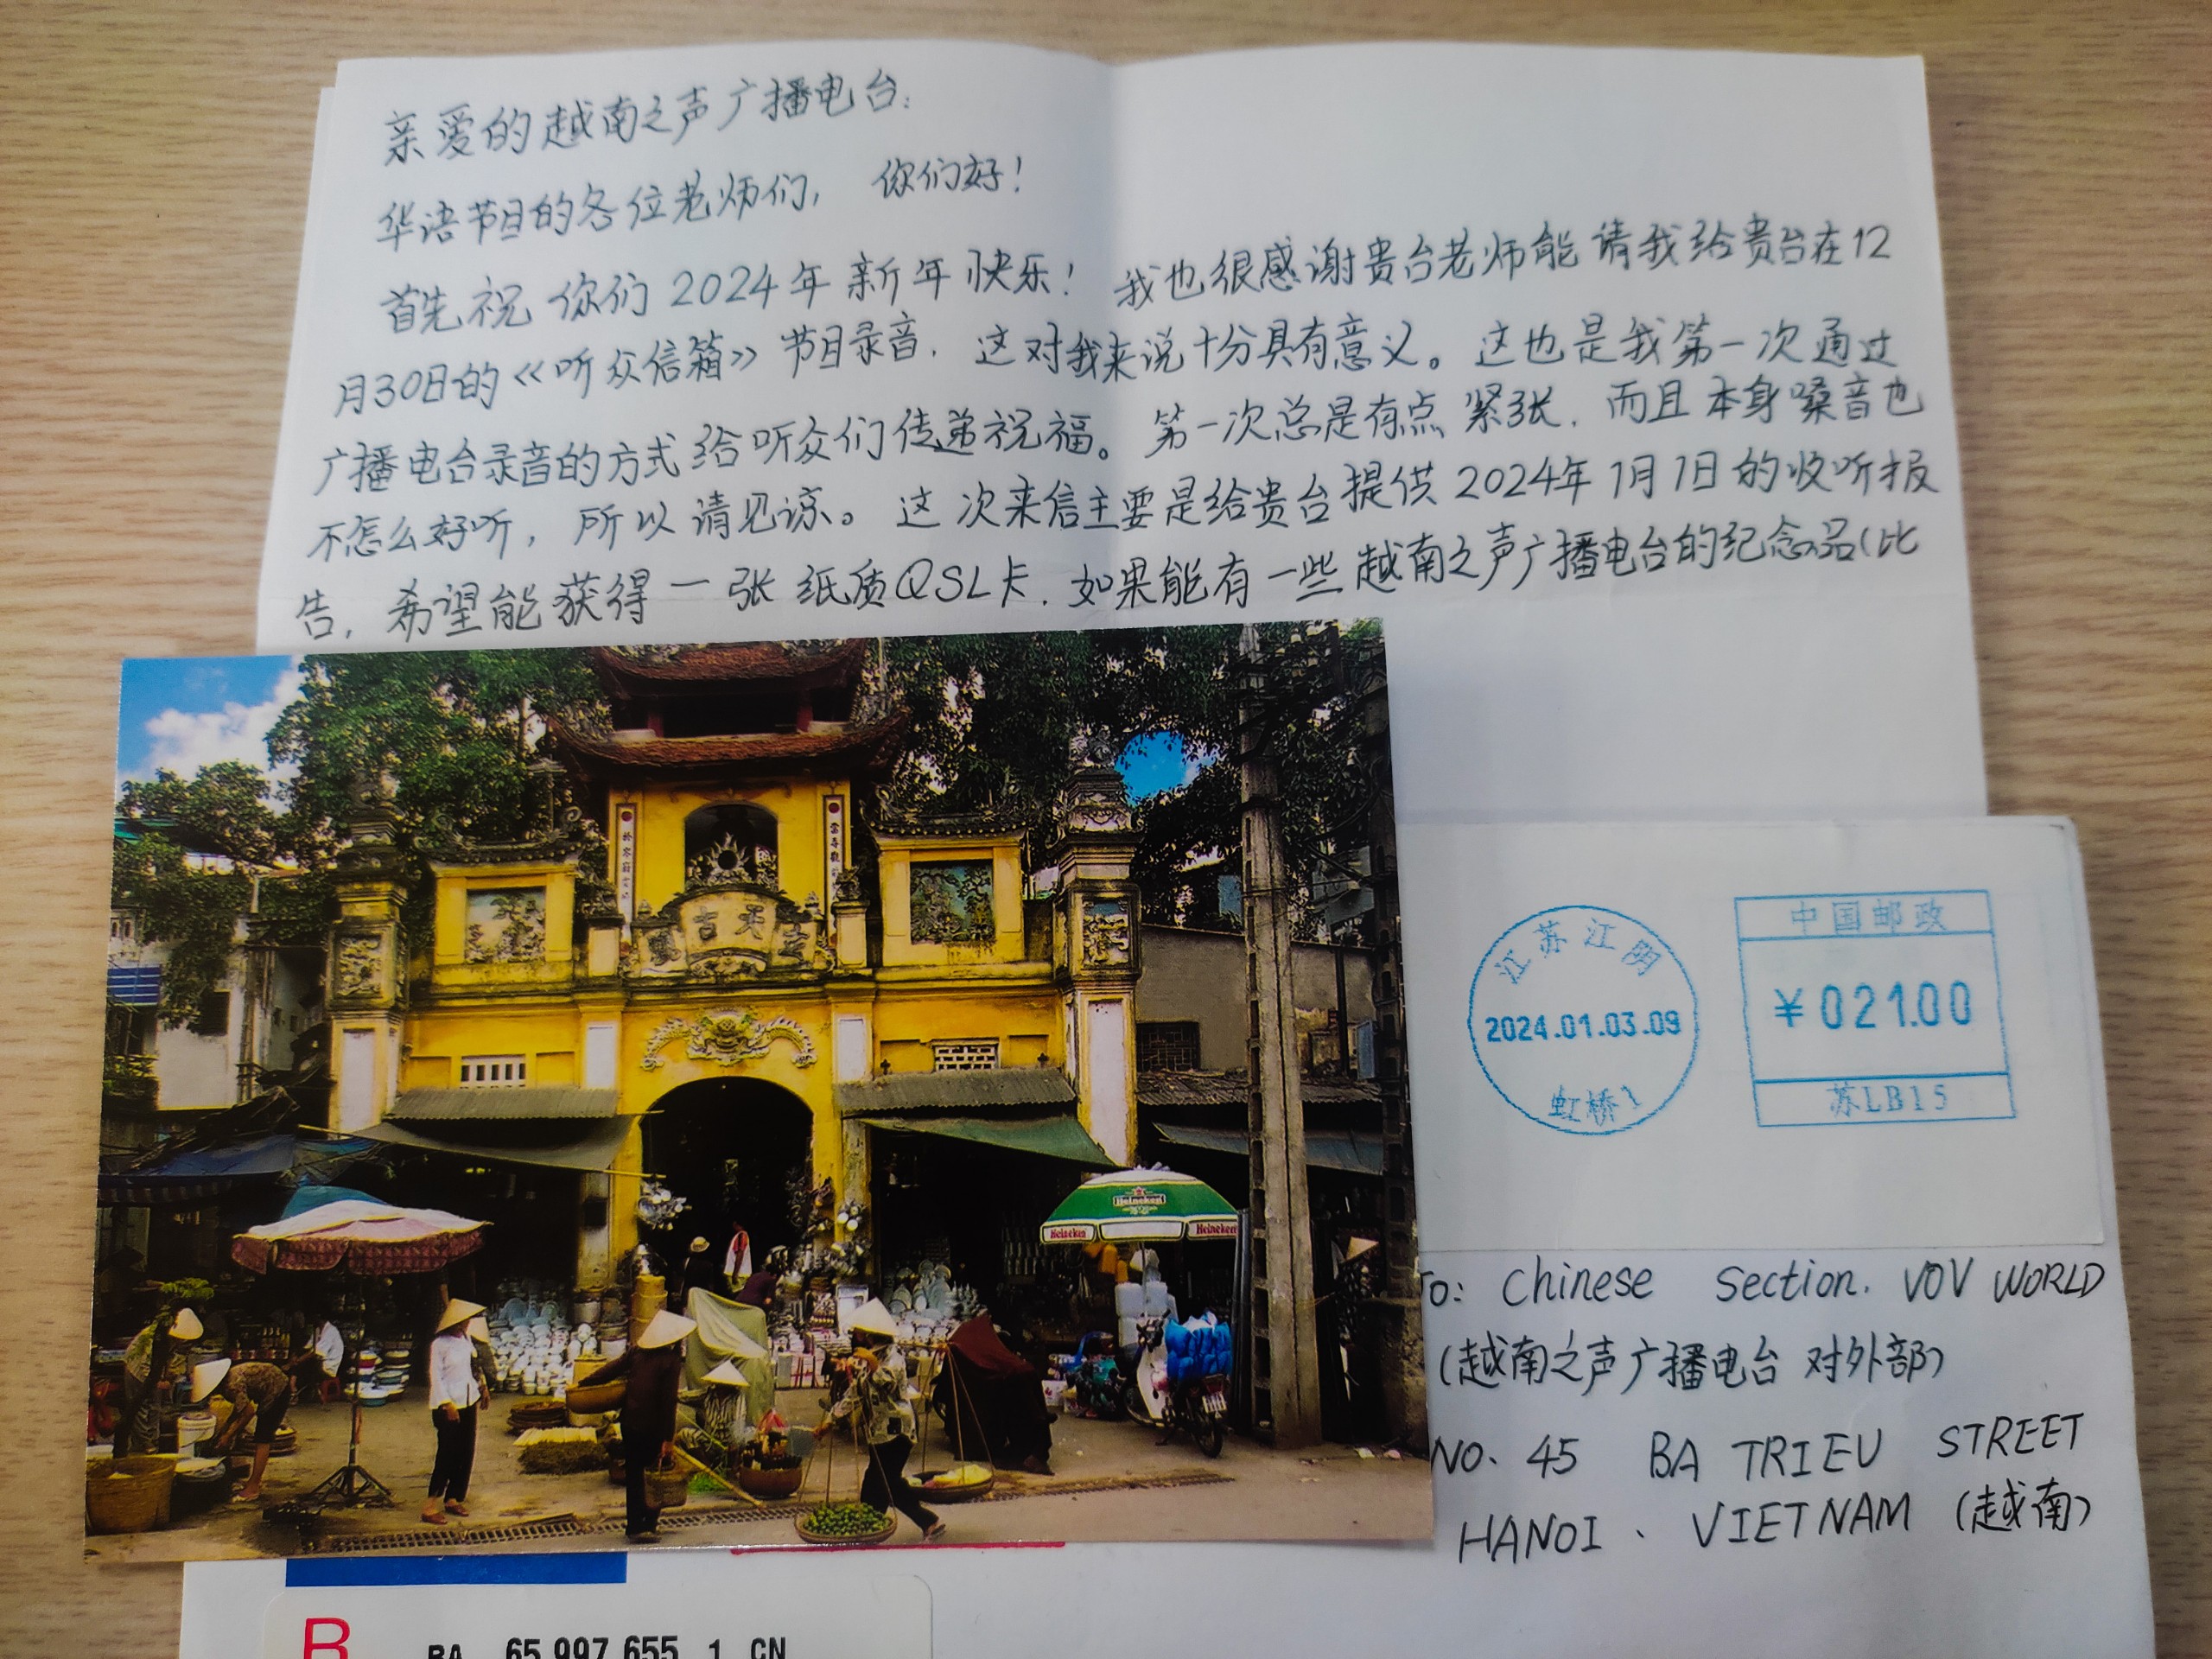 亲爱的越南之声广播电台:
华语节目的各位老师们, 你们好!
首先祝你们2024年新年快乐! 我也很感谢贵台老师能请我给贵台在12
月30日的《听众信箱》节目录音. 这对我来说十分具有意义。这也是我第一次通过
广播电台录音的方式给听众们传递祝福。第一次总是有点紧张. 而且本身嗓音也
不怎么好听, 所以请见谅。这次来信主要是给贵台提供2024年1月1日的收听报
告, 希望能获得一张纸质QSL卡. 如果能有一些越南之声广播电台的纪念品(比
Heineken
Heineken
Heineken
江苏江阴
2024.01.03.09
虹桥1
中国邮政
¥021.00
苏LB15
To: Chinese Section. VOV WORLD
(越南之声广播电台 对外部)
NO. 45 BA TRIEU STREET
HANOI . VIETNAM (越南)
R
BA 65 997 655 1 CN